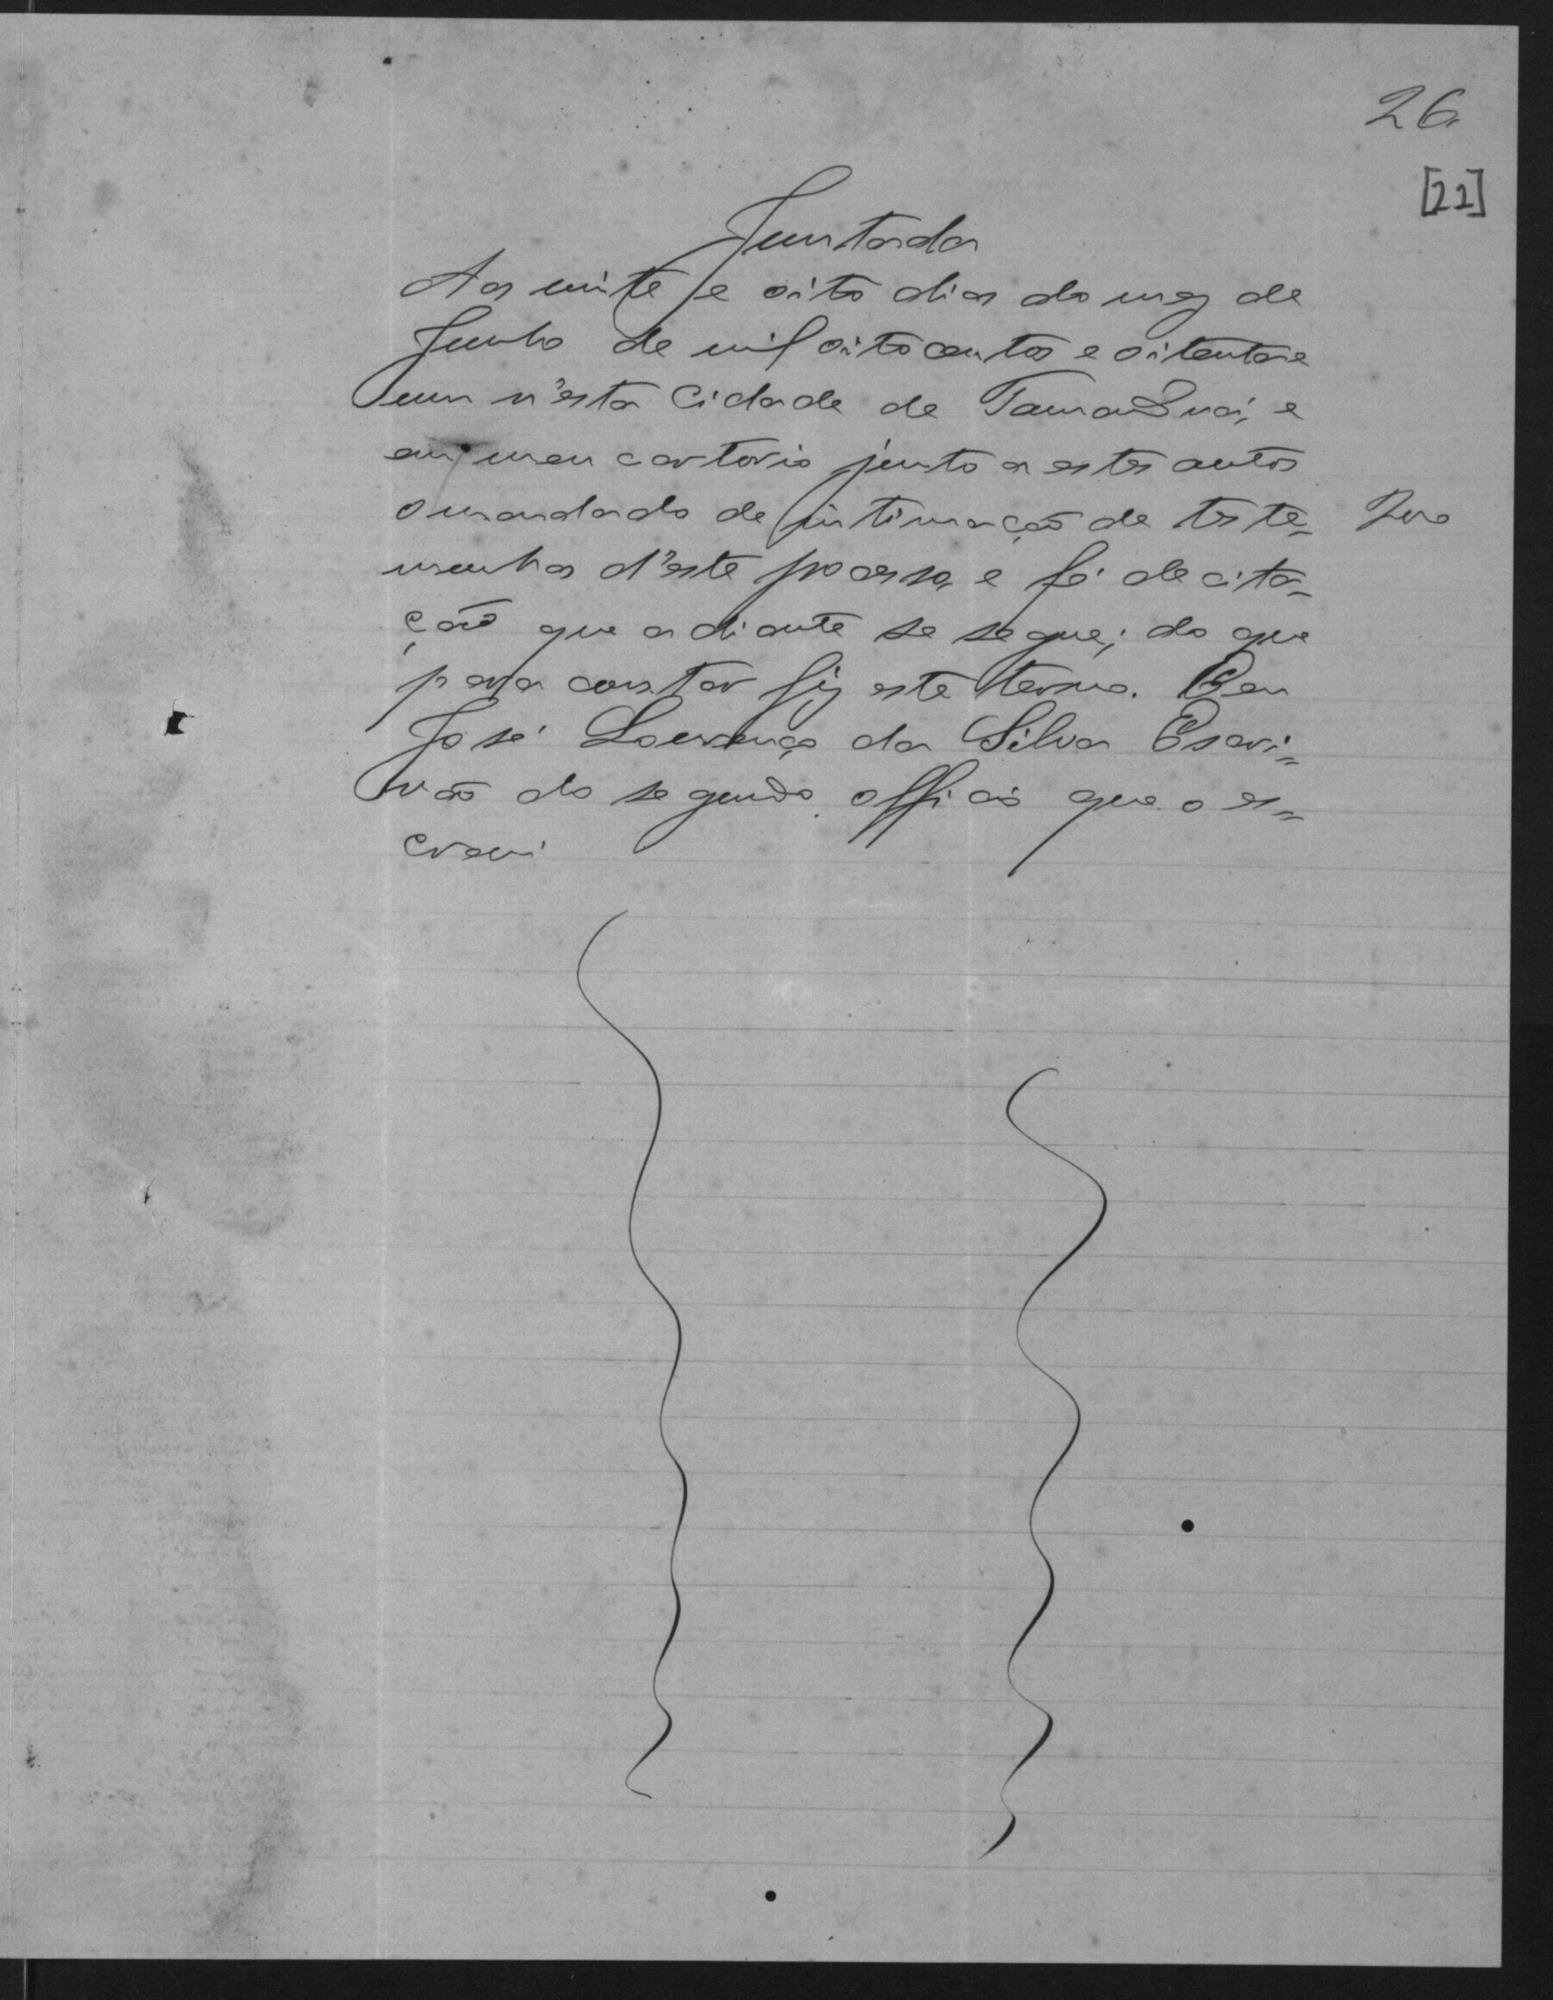 26
[22]
Juntada
Aos vinte e oito dias do mez de
Junho de mil oitocentos e oitenta e
um n'esta Cidade de Taman
em meu cartorio junto a estes autos
o mandado de intimação de teste=
munhas d'este processo, e fé de cita=
ção que adiante se segue; do que
para constar fiz este termo. Eu
José Lourenço da Silva Escri=
vão do segundo officio que o es=
crevi